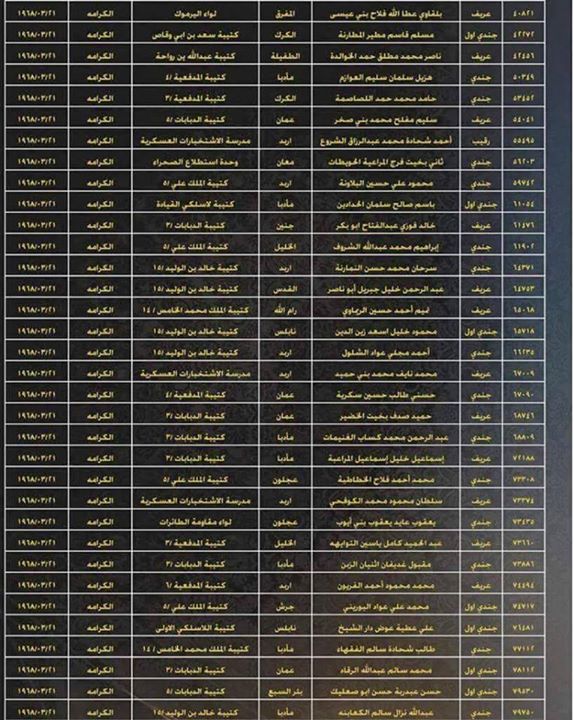 ٤٠٨٢١ عريف بلقاوي عطا الله فلاح بني عيسى المفرق لواء اليرموك الكرامه ١٩٦٨/٠٣/٢١
٤٢٢٧٢ جندي اول مسلم قاسم مطير المطارنة الكرك كتيبة سعد بن ابي وقاص الكرامه ١٩٦٨/٠٣/٢١
٤٢٤٥٦ عريف ناصر محمد مطلق حمد الخوالدة الطفيلة كتيبة عبدالله بن رواحة الكرامه ١٩٦٨/٠٣/٢١
٥٠٣٤٩ جندي هزيل سلمان سليم العوازم مأدبا كتيبة المدفعية /٤ الكرامه ١٩٦٨/٠٣/٢١
٥٣٤٥٢ جندي حامد محمد حمد اللصاصمة الكرك كتيبة المدفعية /٣ الكرامه ١٩٦٨/٠٣/٢١
٥٤٠٤١ عريف سليم مفلح محمد بني صخر عمان كتيبة الدبابات /٥ الكرامه ١٩٦٨/٠٣/٢١
٥٥٤٩٥ رقيب أحمد شحادة محمد عبدالرزاق الشروع اربد مدرسة الاستخبارات العسكرية الكرامه ١٩٦٨/٠٣/٢١
٥٦٢٠٣ جندي ثاني بخيت فرج المراعية الحويطات معان وحدة استطلاع الصحراء الكرامه ١٩٦٨/٠٣/٢١
٥٩٧٤٢ جندي محمود علي حسين البلاونة اربد كتيبة الملك علي /٥ الكرامه ١٩٦٨/٠٣/٢١
٦١٠٥٤ جندي اول باسم صالح سلمان الحدادين مأدبا كتيبة لاسلكي القيادة الكرامه ١٩٦٨/٠٣/٢١
٦١٤٧٦ عريف خالد فوزي عبدالفتاح ابو بكر جنين كتيبة الدبابات /٣ الكرامه ١٩٦٨/٠٣/٢١
٦١٩٠٢ جندي إبراهيم محمد عبدالله الشروف الخليل كتيبة الملك علي /٥ الكرامه ١٩٦٨/٠٣/٢١
٦٤٣٧١ جندي سرحان محمد حسن النمارنة اربد كتيبة خالد بن الوليد /١٥ الكرامه ١٩٦٨/٠٣/٢١
٦٤٧٥٣ عريف عبد الرحمن خليل جبريل أبو ناصر القدس كتيبة خالد بن الوليد /١٥ الكرامه ١٩٦٨/٠٣/٢١
٦٥٠٦٨ عريف نميم أحمد حسين الرماوي رام الله كتيبة الملك محمد الخامس / ١٤ الكرامه ١٩٦٨/٠٣/٢١
٦٥٧١٨ جندي اول محمود خليل اسعد زين الدين نابلس كتيبة خالد بن الوليد /١٥ الكرامه ١٩٦٨/٠٣/٢١
٦٦٢٣٥ جندي أحمد مجلي عواد الشلول اربد كتيبة خالد بن الوليد /١٥ الكرامه ١٩٦٨/٠٣/٢١
٦٧٠٠٩ عريف محمد نايف محمد بني حميد اربد مدرسة الاستخبارات العسكرية الكرامه ١٩٦٨/٠٣/٢١
٦٧٠٩٠ جندي حسني طالب حسين سكرية عمان كتيبة المدفعية /٤ الكرامه ١٩٦٨/٠٣/٢١
٦٨٧٤٦ عريف حميد صدف بخيت الخضير عمان كتيبة الدبابات /٣ الكرامه ١٩٦٨/٠٣/٢١
٦٨٨٠٩ جندي عبد الرحمن محمد كساب الغنيمات مأدبا كتيبة الدبابات /٣ الكرامه ١٩٦٨/٠٣/٢١
٧٢١٨٨ عريف إسماعيل خليل إسماعيل المراعبة مأدبا كتيبة الدبابات /٣ الكرامه ١٩٦٨/٠٣/٢١
٧٣٣٠٨ جندي محمد أحمد فلاح الخطاطبة عجلون كتيبة الملك علي /٥ الكرامه ١٩٦٨/٠٣/٢١
٧٣٣٧٤ عريف سلطان محمود محمد الكوفحي اربد مدرسة الاستخبارات العسكرية الكرامه ١٩٦٨/٠٣/٢١
٧٣٤٣٥ جندي يعقوب عايد يعقوب بني أيوب عجلون لواء مقاومة الطائرات الكرامه ١٩٦٨/٠٣/٢١
٧٣٦٦٠ عريف عبد الحميد كامل ياسين التوايهه الخليل كتيبة المدفعية /٣ الكرامه ١٩٦٨/٠٣/٢١
٧٣٨٨٦ جندي مقبول غديفان اثنيان الزبن مأدبا كتيبة الدبابات /٣ الكرامه ١٩٦٨/٠٣/٢١
٧٤٤٩٤ عريف محمد محمود أحمد الغريون اربد كتيبة المدفعية /٦ الكرامه ١٩٦٨/٠٣/٢١
٧٤٧١٧ جندي اول محمد علي عواد البوريني جرش كتيبة الملك علي /٥ الكرامه ١٩٦٨/٠٣/٢١
٧٦٤٨١ جندي اول علي عطية عوض دار الشيخ نابلس كتيبة اللاسلكي الاولى الكرامه ١٩٦٨/٠٣/٢١
٧٧١١٢ جندي طالب شحادة سالم الفقهاء مأدبا كتيبة الملك محمد الخامس / ١٤ الكرامه ١٩٦٨/٠٣/٢١
٧٨١١٢ جندي اول محمد سالم عبدالله الرقاد عمان كتيبة الدبابات /٣ الكرامه ١٩٦٨/٠٣/٢١
٧٩٥٣٠ جندي اول حسن عبدربة حسن ابو صعليك بئر السبع كتيبة الدبابات /٥ الكرامه ١٩٦٨/٠٣/٢١
٧٩٧٥٠ جندي عبدالله نزال سالم الكعابنه مأدبا كتيبة خالد بن الوليد /١٥ الكرامه ١٩٦٨/٠٣/٢١